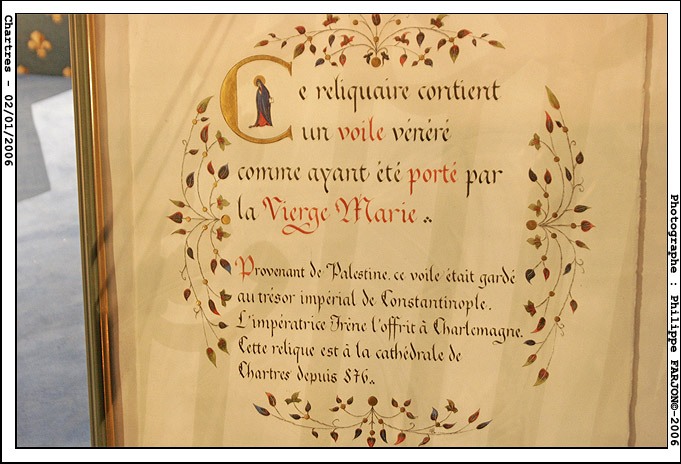 Chartres - 02/01/2006
Ce reliquaire contient
un voile vénéré
comme ayant été porté par
la Vierge Marie
Provenant de Palestine, ce voile était gardé
au trésor impérial de Constantinople.
L'impératrice Irène l'offrit à Charlemagne.
Cette relique est à la cathédrale de
Chartres depuis 876.
Photographe : Philippe FARJON©-2006